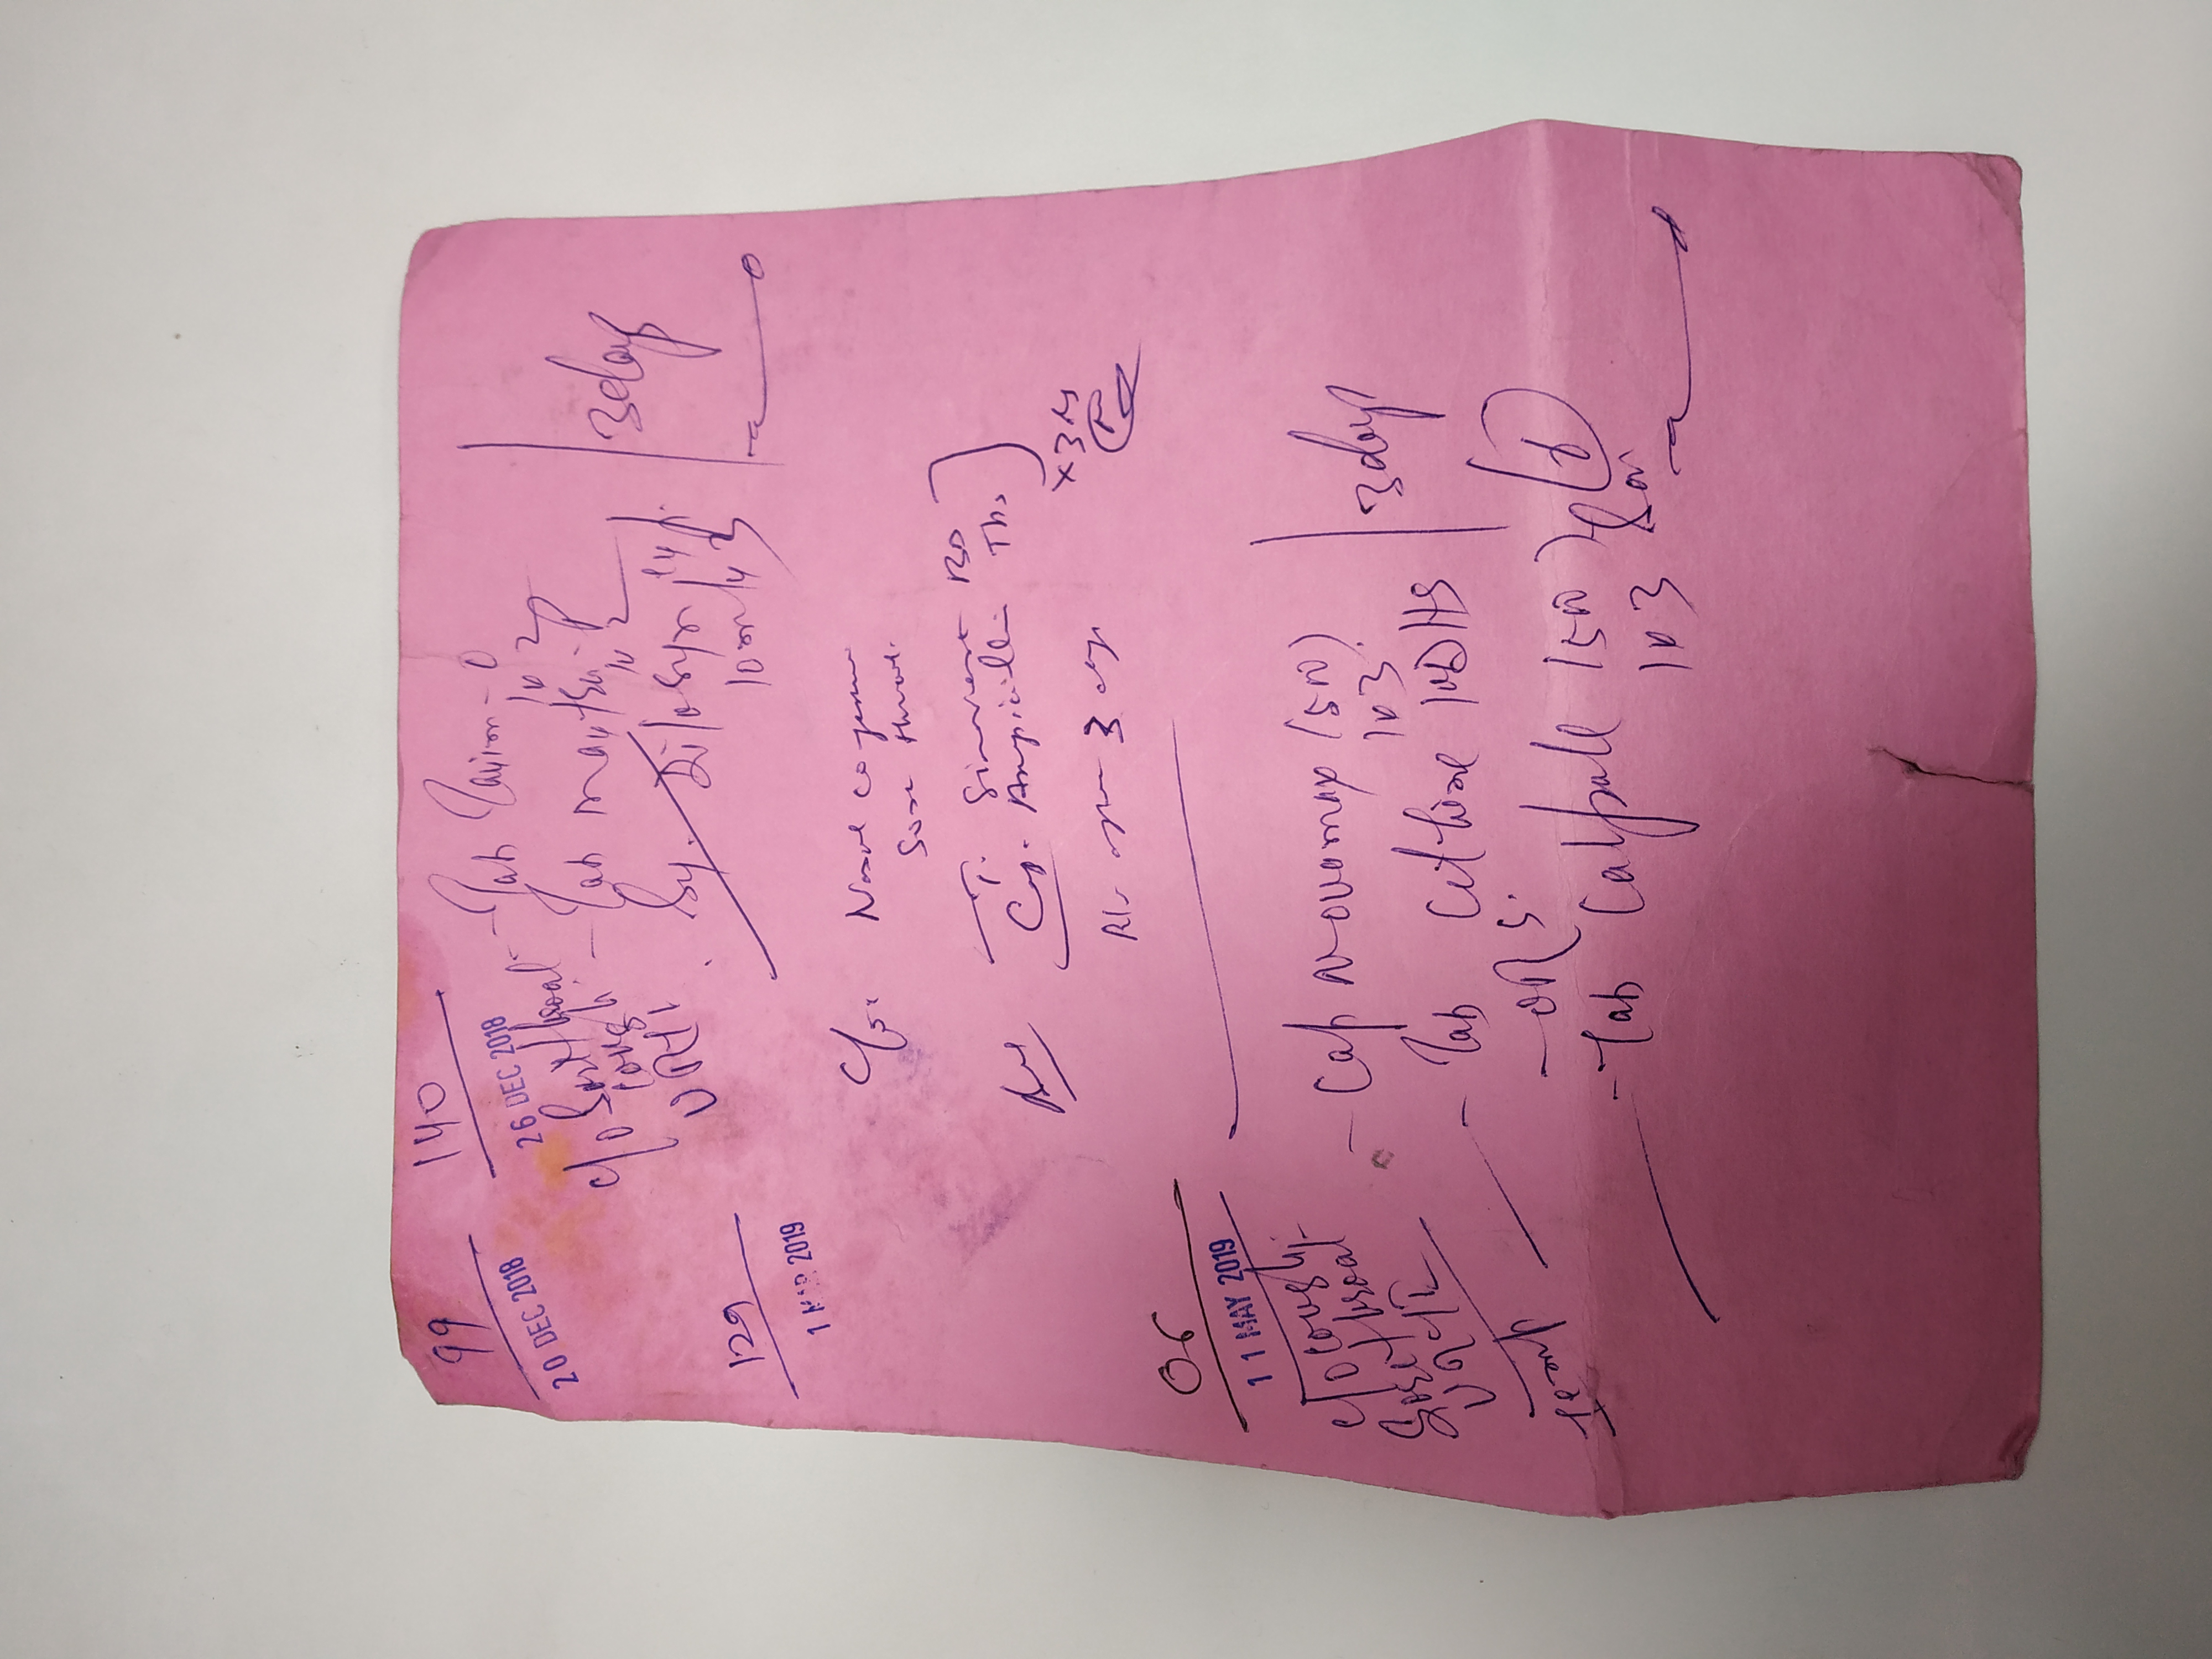 99
20 DEC 2018
140
26 DEC 2018
c/o Sore throat
cough
URTI
- Tab Taxim-O
1x2
- Tab
1x2
Sy.
10ml x 3
3 days
129
1 MAR 2019
C/o. Nasal congestion
Sore throat.
Adv
T. Sinarest BD
Cap. Ampicillin TDS
x 3
R/v after 3 days
06
11 MAY 2019
c/o cough
Sore throat
URTI
Temp
- Cap Novamox (500)
1x3
- Tab Cetrizine HS
3 days
- ORS.
- Tab Calpol (500)
1x3